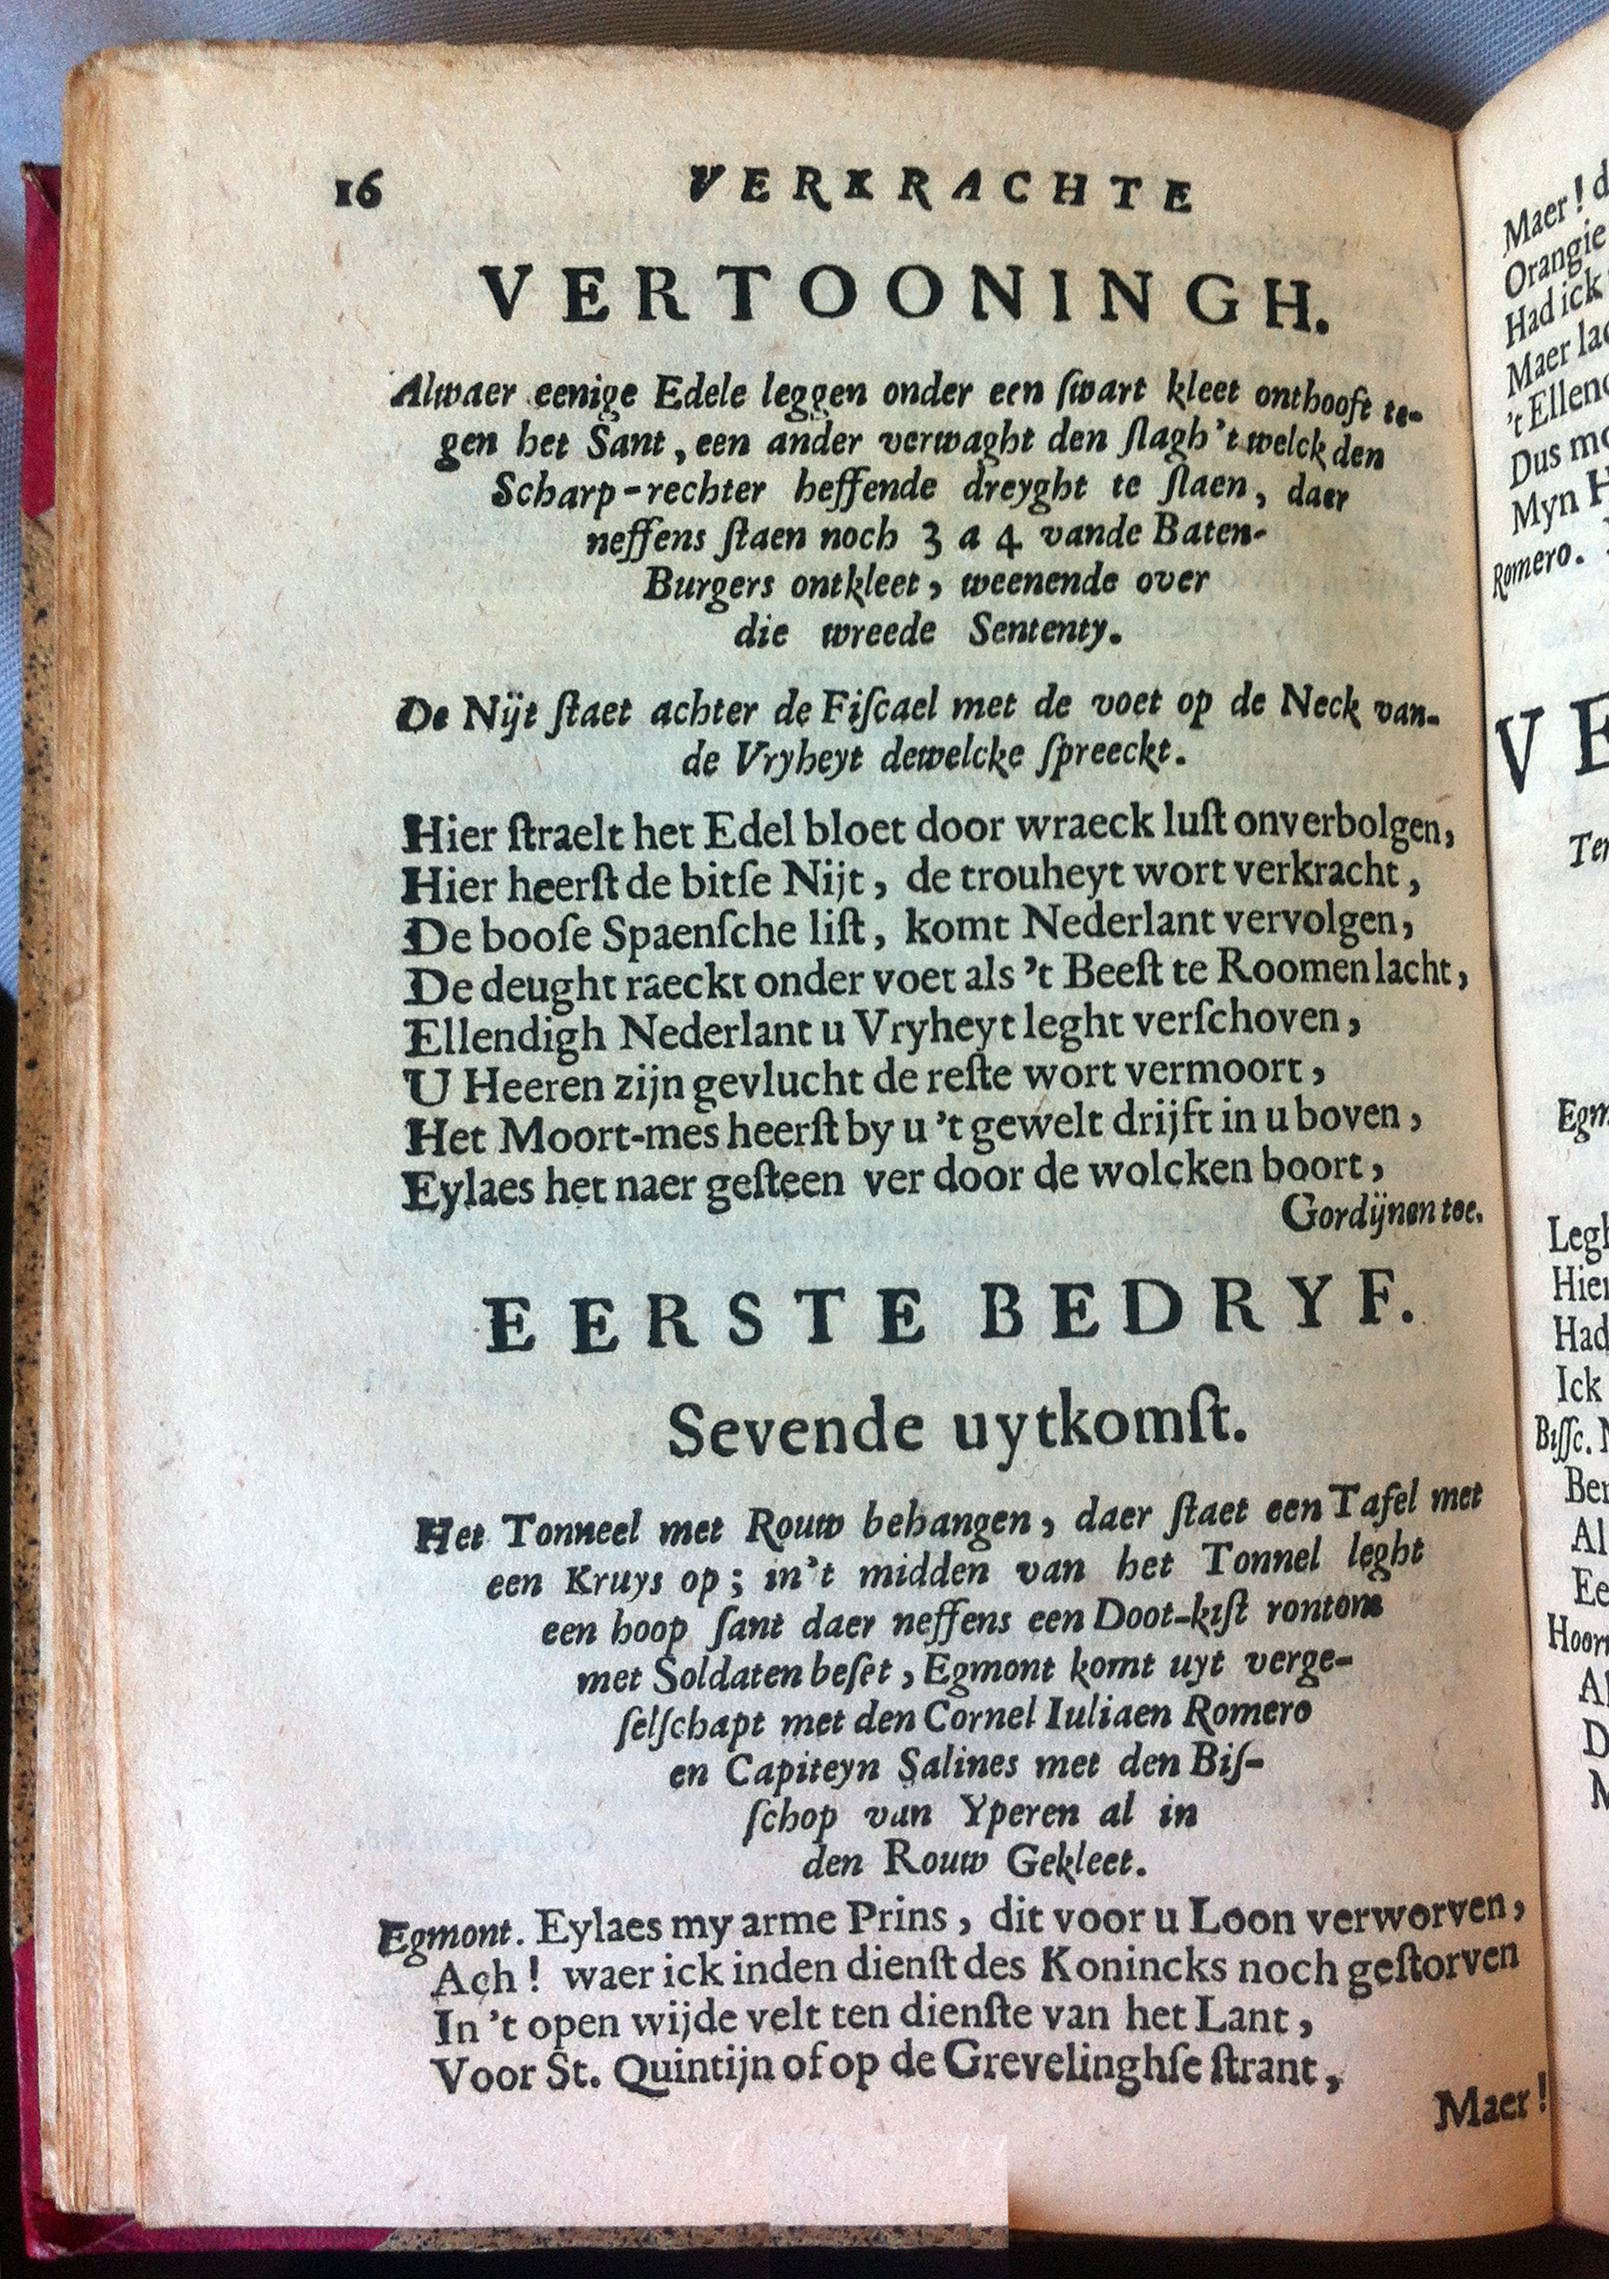 16 VERKRACHTE
VERTOONINGH.
Alwaer eenige Edele leggen onder een ſwart kleet onthooft te-
gen het Sant, een ander verwaght den ſlagh 't welck den
Scharp-rechter heffende dreyght te ſlaen, daer
neffens ſtaen noch 3 a 4 vande Baten-
Burgers ontkleet, weenende over
die wreede Sententy.
De Nijt ſtaet achter de Fiſcael met de voet op de Neck van-
de Vryheyt dewelcke ſpreeckt.
Hier ſtraelt het Edel bloet door wraeck luſt onverbolgen,
Hier heerſt de bitſe Nijt, de trouheyt wort verkracht,
De booſe Spaenſche liſt, komt Nederlant vervolgen,
De deught raeckt onder voet als 't Beeſt te Roomen lacht,
Ellendigh Nederlant u Vryheyt leght verſchoven,
U Heeren zijn gevlucht de reſte wort vermoort,
Het Moort-mes heerſt by u 't gewelt drijft in u boven,
Eylaes het naer geſteen ver door de wolcken boort,
Gordijnen toe.
EERSTE BEDRYF.
Sevende uytkomſt.
Het Tonneel met Rouw behangen, daer ſtaet een Tafel met
een Kruys op; in't midden van het Tonnel leght
een hoop ſant daer neffens een Doot-kiſt rontom
met Soldaten beſet, Egmont komt uyt verge-
ſelſchapt met den Cornel Iuliaen Romero
en Capiteyn Salines met den Biſ-
ſchop van Yperen al in
den Rouw Gekleet.
Egmont. Eylaes my arme Prins, dit voor u Loon verworven,
Ach! waer ick inden dienſt des Konincks noch geſtorven
In 't open wijde velt ten dienſte van het Lant,
Voor St. Quintijn of op de Grevelinghſe ſtrant,
Maer!
Maer! d
Orangie
Had ick
Maer
't Ellen
Dus
Myn
Romero.
VE
Egm
Hier
Had
Ick
Biſſc.